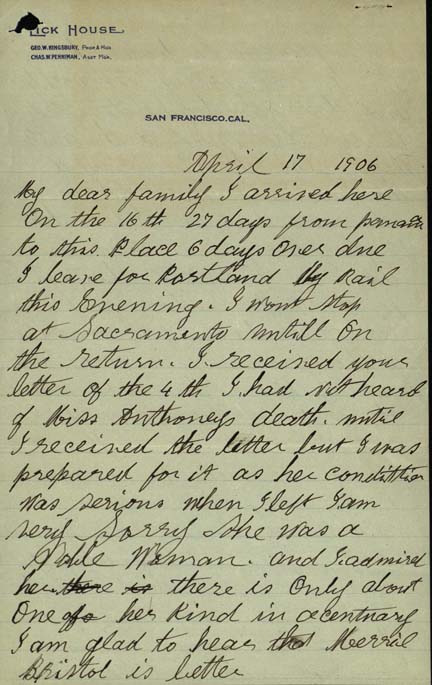 Lick House
GEO. W. KINGSBURY, PROP & MGR
CHAS. W. PENNIMAN, ASST MGR.
SAN FRANCISCO. CAL.
April 17 1906
My dear family I arrived here
On the 16 th 27 days from panama
to this. Place 6 days Over due
I leave for Portland by Rail
this Evening. I wont Stop
at Sacramento untill On
the return. I received your
letter of the 4 th I had not heard
of Miss Anthoneys death. until
I received the letter but I was
prepared for it as her condittion
was serious when I left I am
very Sorry She was a
Noble Woman. and I admired
her there is there is Only about
One of her Kind in a centuary
I am glad to hear that Merril
Bristol is better